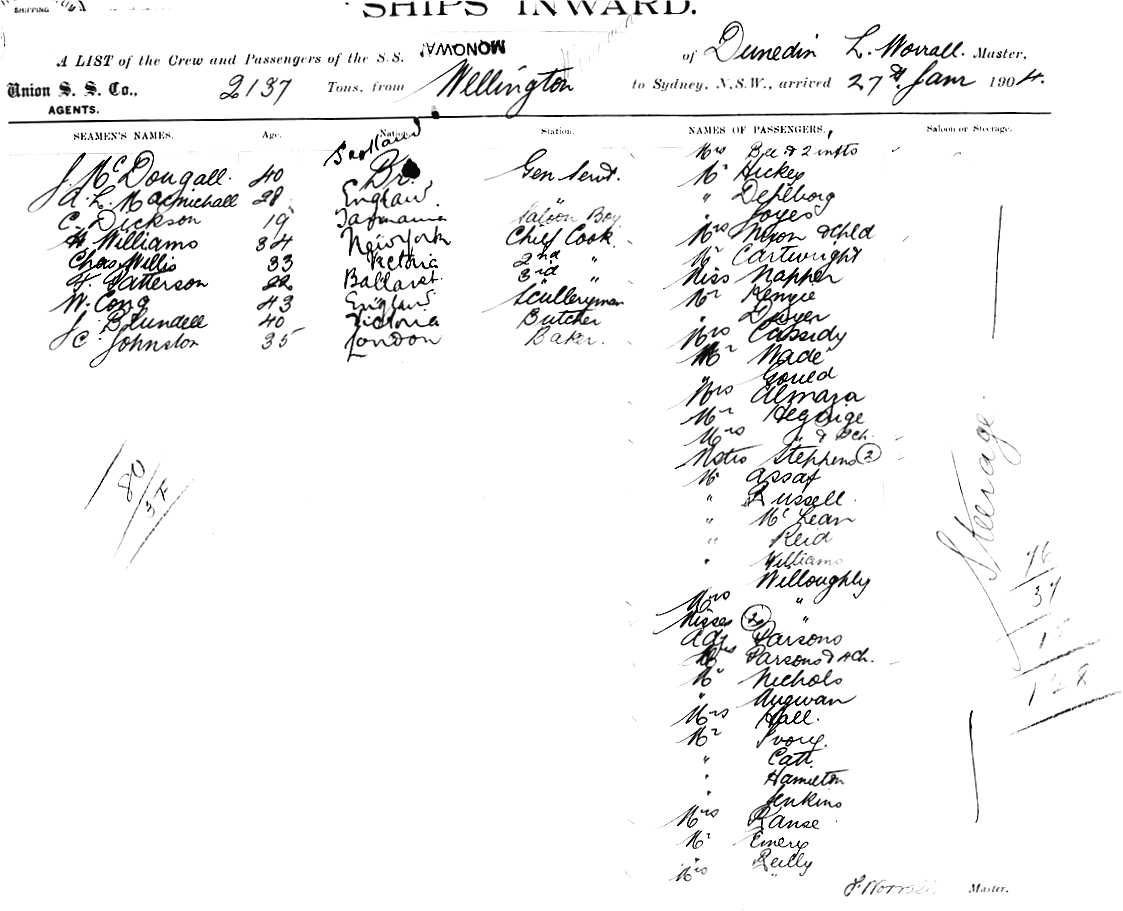 SHIPPING
SHIPS INWARD.
A LIST of the Crew and Passengers of the S.S. MONOWAI of Dunedin L. Worrall. Master,
Union S. S. Co., 2137 Tons, from Wellington to Sydney, N.S.W., arrived 27th Jany 1904.
AGENTS.
SEAMEN'S NAMES. Age. Nation Station. NAMES OF PASSENGERS, Saloon or Steerage.
Scotland
J. McDougall. 40 Br. Gen Servt.
A. L. MacMichall 28 England "
C. Dickson 19 Tasmania Saloon Boy
H Williams 34 New York Chief Cook
Chas Willis 33 Victoria 2nd "
F. Patterson 22 Ballarat 3rd "
W. Cong 43 England Sculleryman
J. Blundell 40 Victoria Butcher
J C. Johnston 35 London Baker.
Mrs Bee & 2 infts
Mr Hickey
" Depleborg
" Joyes
Mrs Nixon & chld
Mr Cartwright
Miss Napper
Mr Kenzie
" Dwyer
Mrs Cassidy
Mr Wade
" Gould
Mrs Almaza
Mr Hegaige
Mrs " & ch.
Mstrs Stephens 2
Mr Assaf
" Russell.
" McLean
" Reid
" Williams
Willoughby
Mrs "
Misses 2 "
Adj Parsons
Mrs Parsons & 4 ch.
Mr Nichols
" Augwan
Mrs Hall.
Mr Ivory.
" Catt
" Hamilton
" Jenkins
Mrs Ranse
Mr Emery
" Reilly
Mrs "
Steerage.
80
37
76
37
15
128
L. Worrall Master.